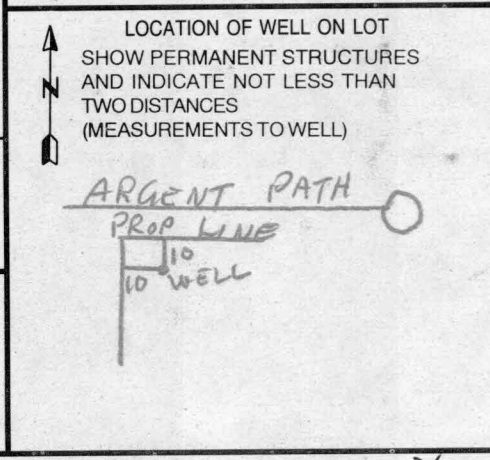 LOCATION OF WELL ON LOT
SHOW PERMANENT STRUCTURES
N AND INDICATE NOT LESS THAN
TWO DISTANCES
(MEASUREMENTS TO WELL)
ARGENT PATH
PROP LINE
10
10 WELL